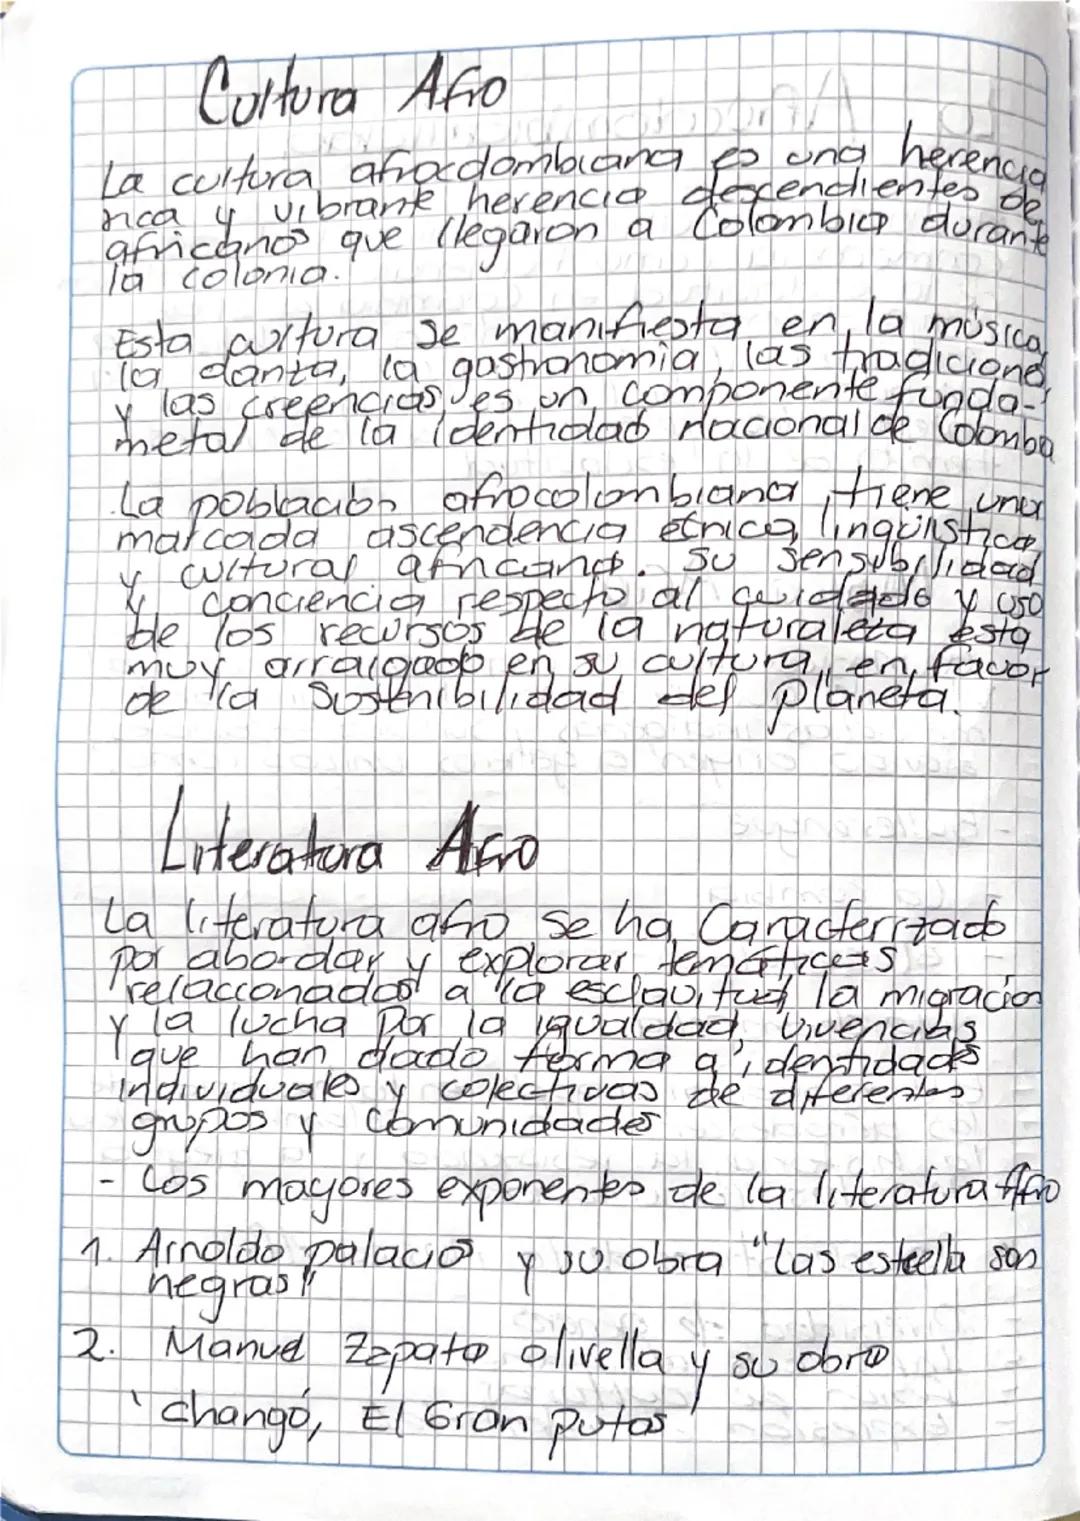 Cultura Afro
La cultura afrocolombiana es una herencia
rica y vibrante herencia descendientes de
africanos que llegaron a Colombia durante
la colonia.
Esta cultura se manifiesta en la música,
la danza, la gastronomia, las tradiciones,
y las creencias, es un componente funda-
metal de la identidad nacional de Colombia
La población afrocolombiana tiene una
marcada ascendencia étnica, lingüistica,
y cultural africana. su sensibilidad
y conciencia respecto al cuidado y uso
de los recursos de la naturaleza esta
muy arraigado en su cultura, en favor
de la sostenibilidad del planeta.
Literatura Afro
La literatura afro se ha Caracterizado
por abordar y explorar temáticas
relaccionadas a la esclavitud, la migración
y la lucha por la igualdad, vivencias
que han dado forma a identidades
individuales y colectivas de diferentes
grupos y comunidades
- Los mayores exponentes de la literatura Afro
1. Arnoldo palacios y su obra "Las estrella son
negras"
2. Manuel Zapata olivella y su obra
'changó, El Gran putas